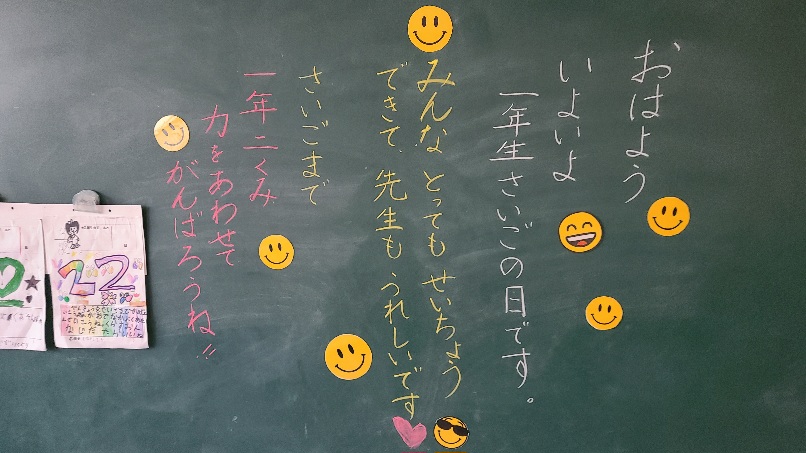 おはよう
いよいよ
一年生さいごの日です。
みんな とっても せいちょう
できて、先生も うれしいです
さいごまで
一年二くみ
力をあわせて
がんばろうね!!
22